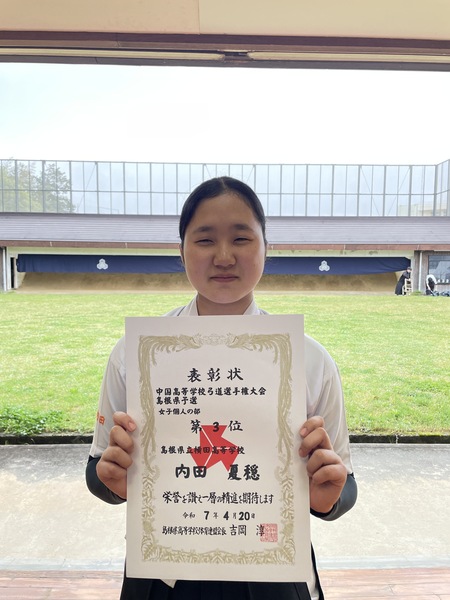 表彰状
中国高等学校弓道選手権大会
島根県予選
女子個人の部
第 3 位
島根県立横田高等学校
内田 夏穏
栄誉を讃え一層の精進を期待します
令和 7年4月20日
島根県高等学校体育連盟会長 吉岡 淳